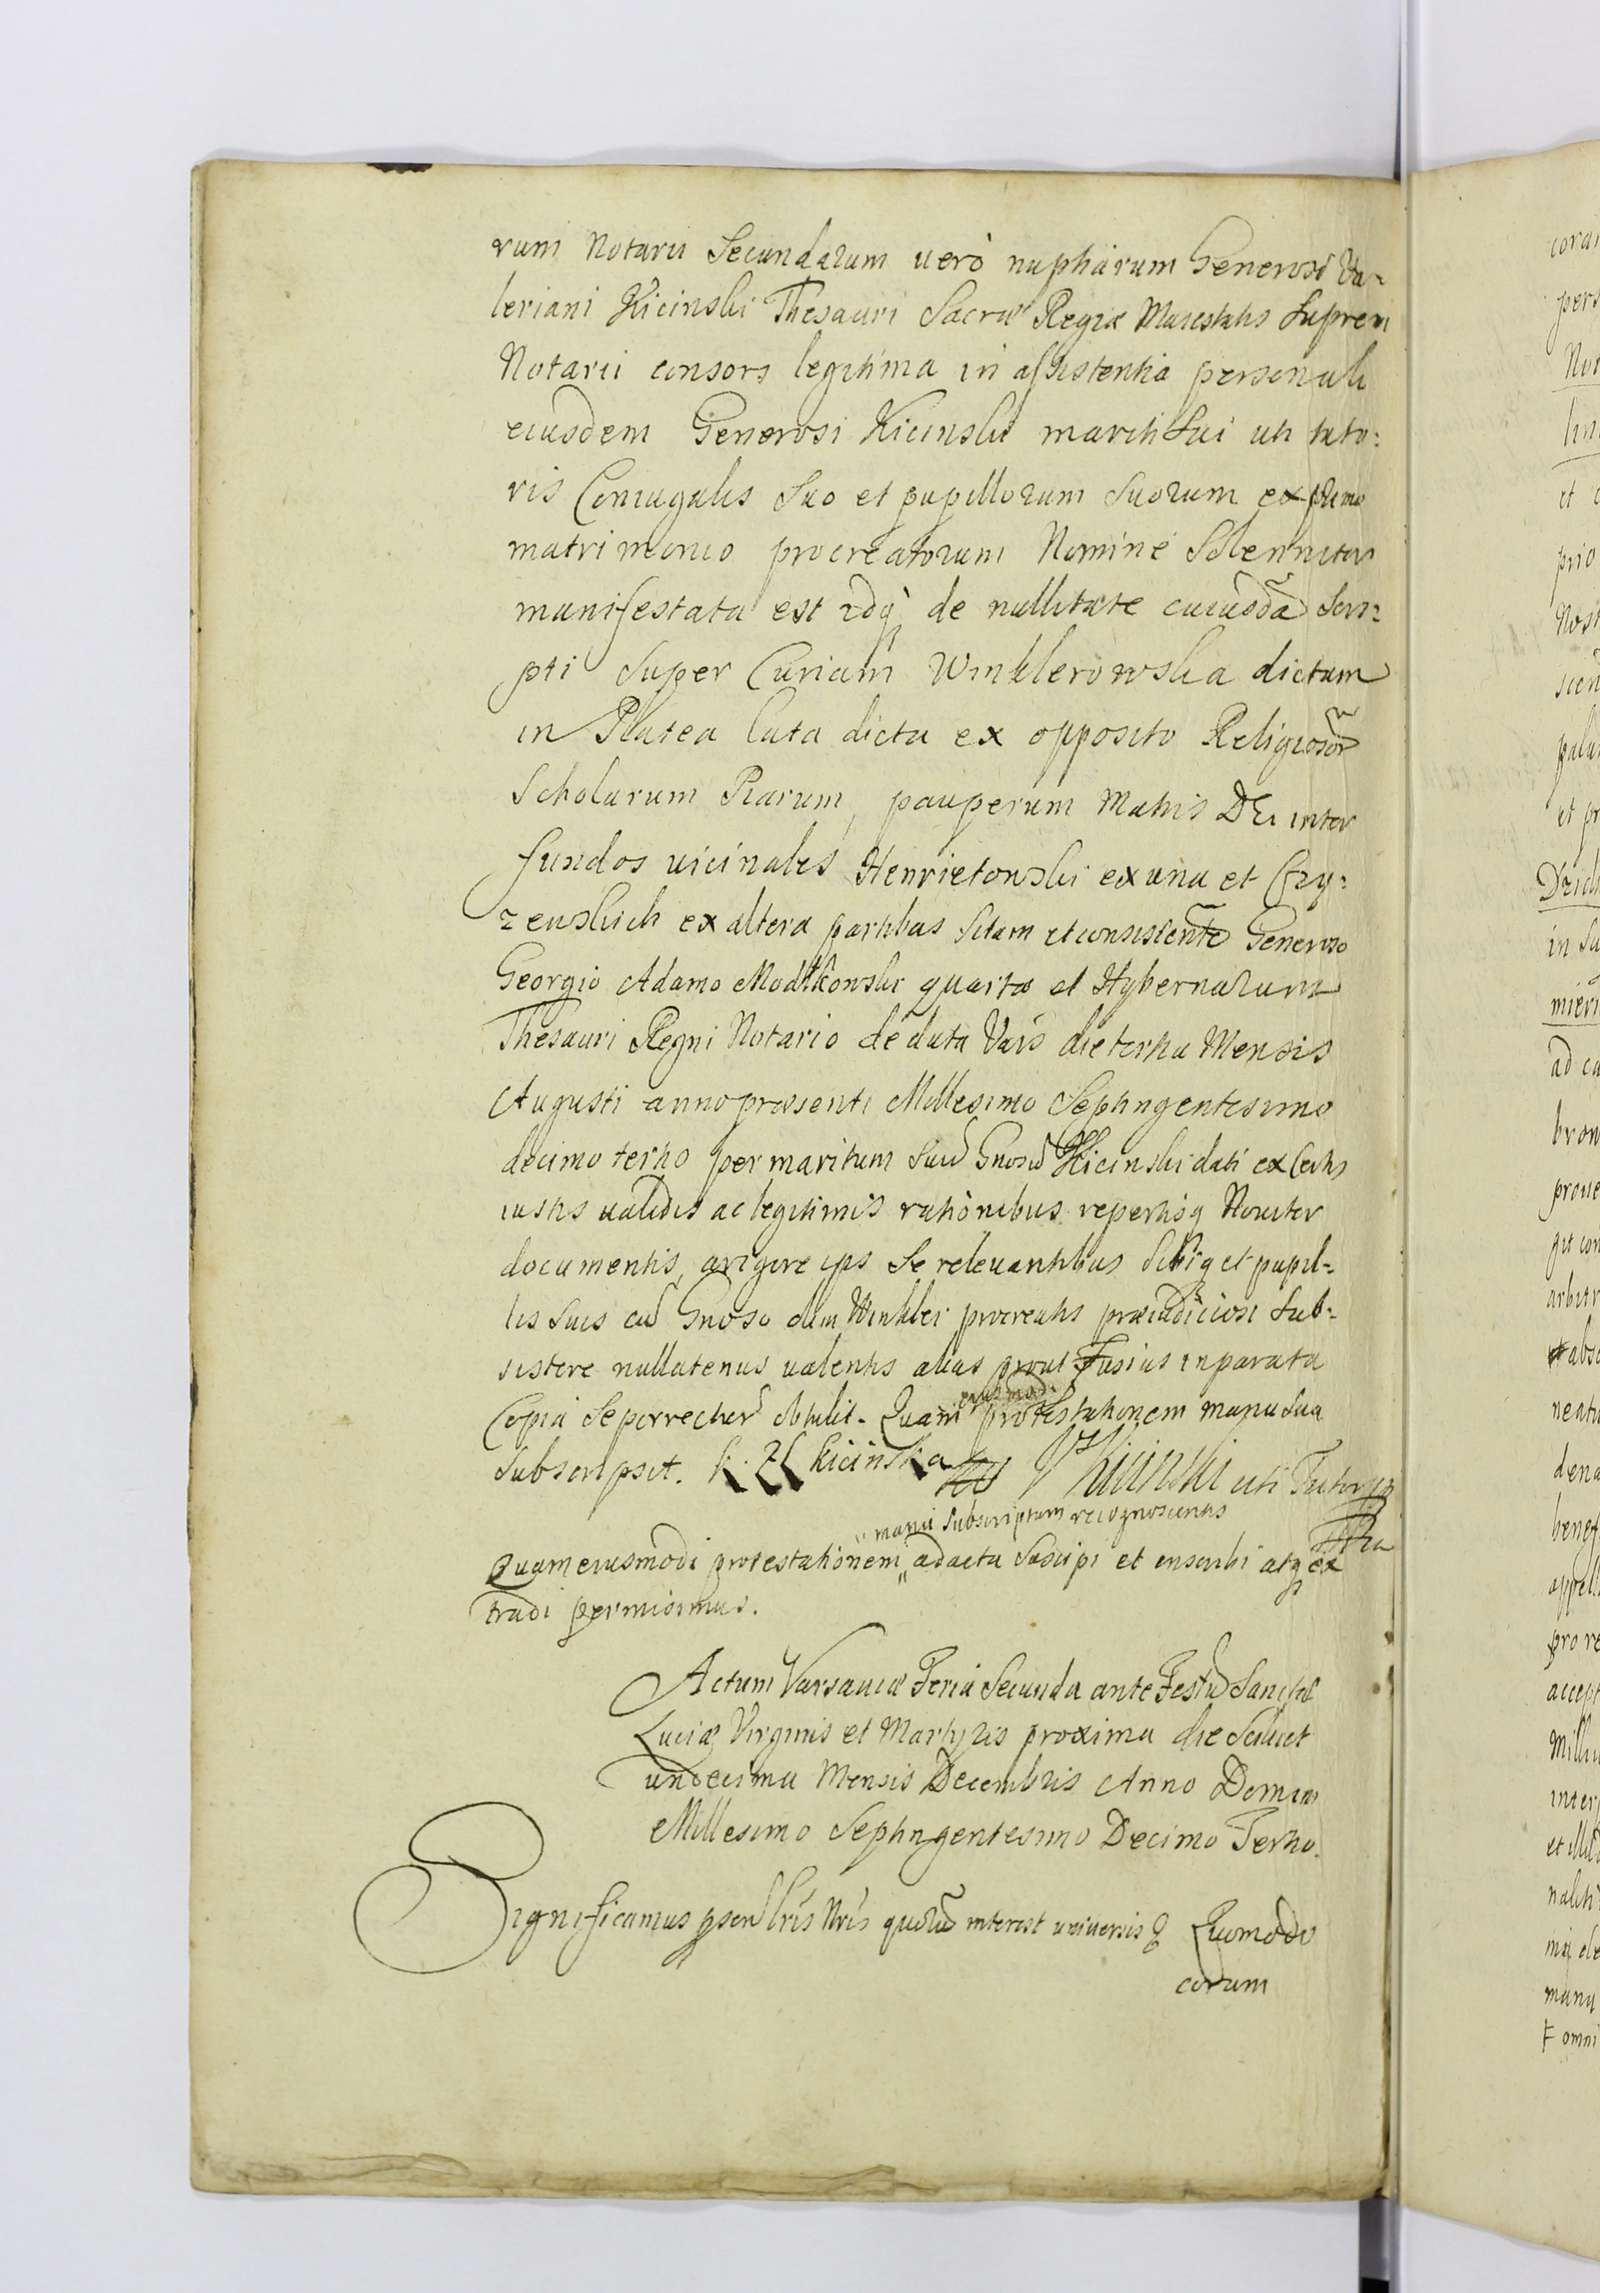 rum Notarii Secundarum verò nuptiarum Generosi Va-
leriani Kicinski Thesauri Sacræ Regiæ Maiestatis Supremi
Notarii consors legitima in assistentia personali
eiusdem Generosi Kicinski mariti Sui uti tuto:
ris Coniugalis Suo et pupillorum Suorum ex primo
matrimonio procreatorum Nomine Solenniter
manifestata est idq de nullitate cuiusdã Scri:
pti Super Curiam Winklerowska dictam
in Platea lata dicta ex opposito Religiosor
Scholarum Piarum, pauperum Matris DEi inter
fundos vicinales Henrietowski ex una et Czy:
zewskich ex altera partibus Sitam et consistentẽ Generoso
Georgio Adamo Modtkowski quartæ et Hybernarum
Thesauri Regni Notario de data Vars die tertia Mensis
Augusti anno præsenti Millesimo Septingentesimo
decimo tertio per maritum Suũ Gnosũ Kicinski dati ex Certis
iustis validis ac legitimis rationibus repertisq Noviter
documentis, a rigore ips Se relevantibus Sibiq et pupil-
lis Suis cũ Gnoso olim Winkler procreatis præiudiciosi Sub-
sistere nullatenus valentis alias prout Fusius in parata
Copia Se porrecturã obtulit. Quam eiusmodi protestationem manu Sua
Subscripsit. K. Kicinska V Kicinski uti Tutor
manu Subscriptam recognoscentis
Quam eiusmodi protestationem ad acta Suscipi et inscribi atq ex
tradi permisimus.
Actum Varsaviæ Feria Secunda ante Festũ Sanctæ
Luciæ Virginis et Martyris proxima die Scilicet
undecima Mensis Decembris Anno Domini
Millesimo Septingentesimo Decimo Tertio.
Significamus psen lris Nris quorũ interest universis Quomodo
coram